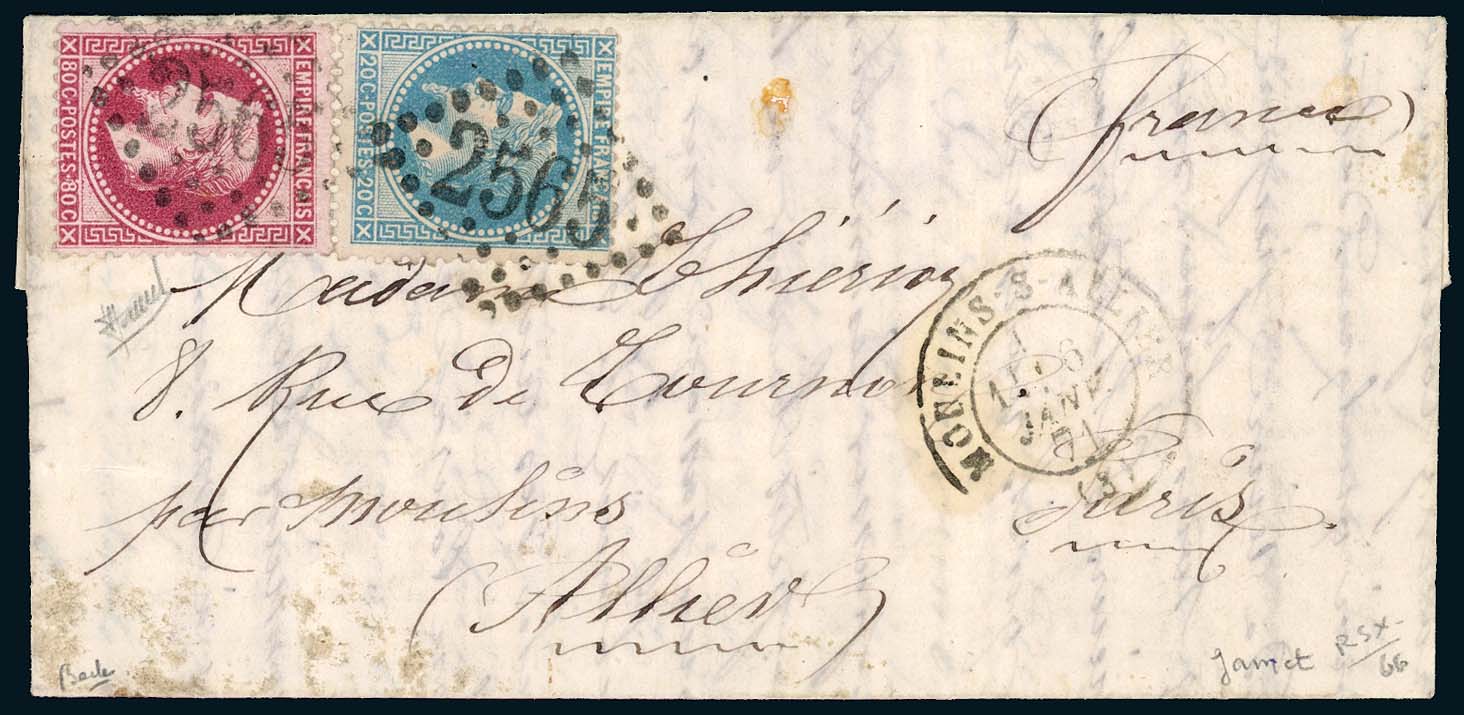 EMPIRE FRANCAIS
80 C · POSTES · 80 C
EMPIRE FRANC
20 C · POSTES · 20 C
2565
2565
(France)
Madame Thiérion
8. Rue de Tournon
par Moulins
Paris.
(Allier)
MOEEINS-S-ALLIER
1E
6
JANV
71
(3)
Jamet
RSX-
66